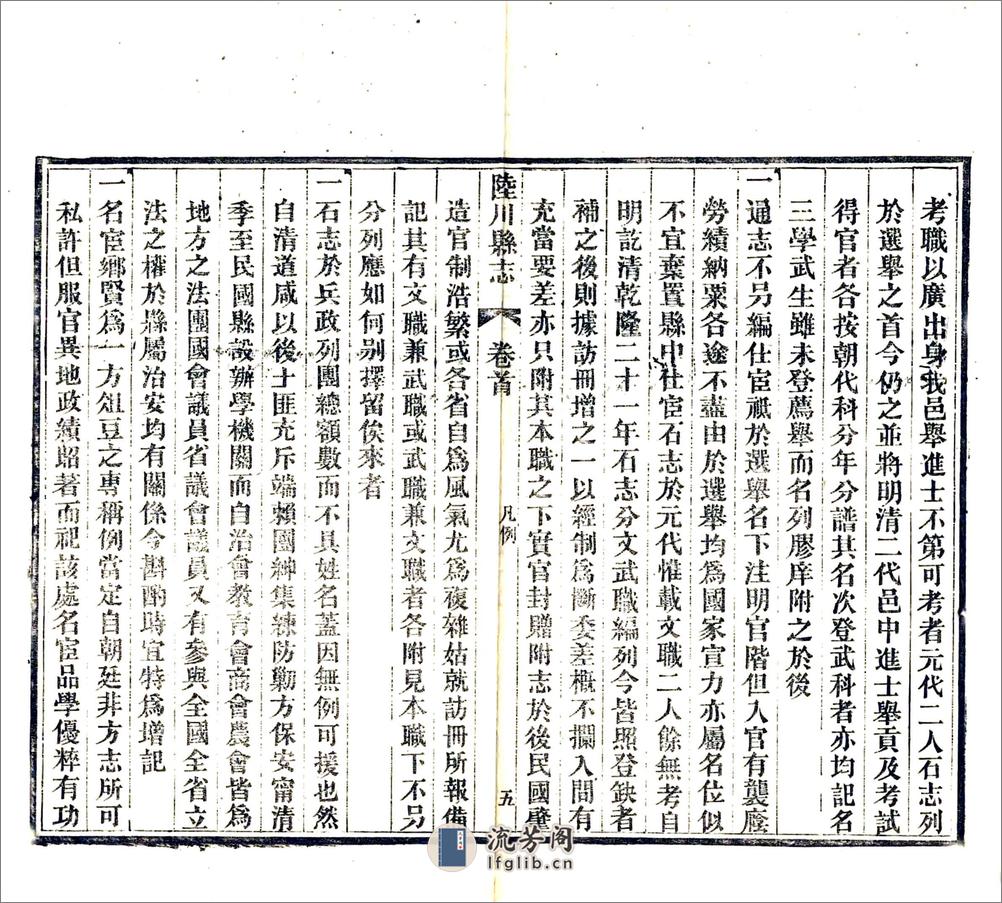 考職以廣出身我邑舉進士不第可考者元代二人石志列
於選舉之首今仍之並將明清二代邑中進士舉貢及考試
得官者各按朝代科分年分譜其名次登武科者亦均記名
三學武生雖未登薦舉而名列膠庠附之於後
一通志不另編仕宦祇於選舉名下注明官階但入官有襲廕
勞績納粟各途不盡由於選舉均爲國家宣力亦屬名位似
不宜棄置縣中仕宦石志於元代惟載文職二人餘無考自
明訖清乾隆二十一年石志分文武職編列今皆照登缺者
補之後則據訪冊增之一以經制爲斷委差概不攔入間有
充當要差亦只附其本職之下實官封贈附志於後民國肇
陸川縣志 卷首 凡例 五
造官制浩繁或各省自爲風氣尤爲複雜姑就訪冊所報備
記其有文職兼武職或武職兼文職者各附見本職下不另
分列應如何別擇留俟來者
一石志於兵政列團總額數而不具姓名蓋因無例可援也然
自清道咸以後土匪充斥端賴團紳集練防勦方保安甯清
季至民國縣設辦學機關而自治會教育會商會農會皆爲
地方之法團國會議員省議會議員又有參與全國全省立
法之權於縣屬治安均有關係今斟酌時宜特爲增記
一名宦鄉賢爲一方俎豆之專稱例當定自朝廷非方志所可
私許但服官異地政績昭著而祀該處名宦品學優粹有功
流芳阁
lfglib.cn